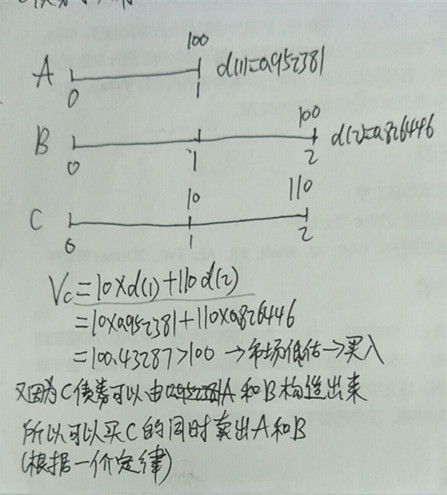 100
A d(1)=0.952381
0 1
100
B d(2)=0.826446
0 1 2
10 110
C
0 1 2
Vc=10×d(1)+110d(2)
=10×0.952381+110×0.826446
=100.43287>100 →市场低估→买入
又因为C债券可以由A和B构造出来
所以可以买C的同时卖出A和B
(根据一价定律)